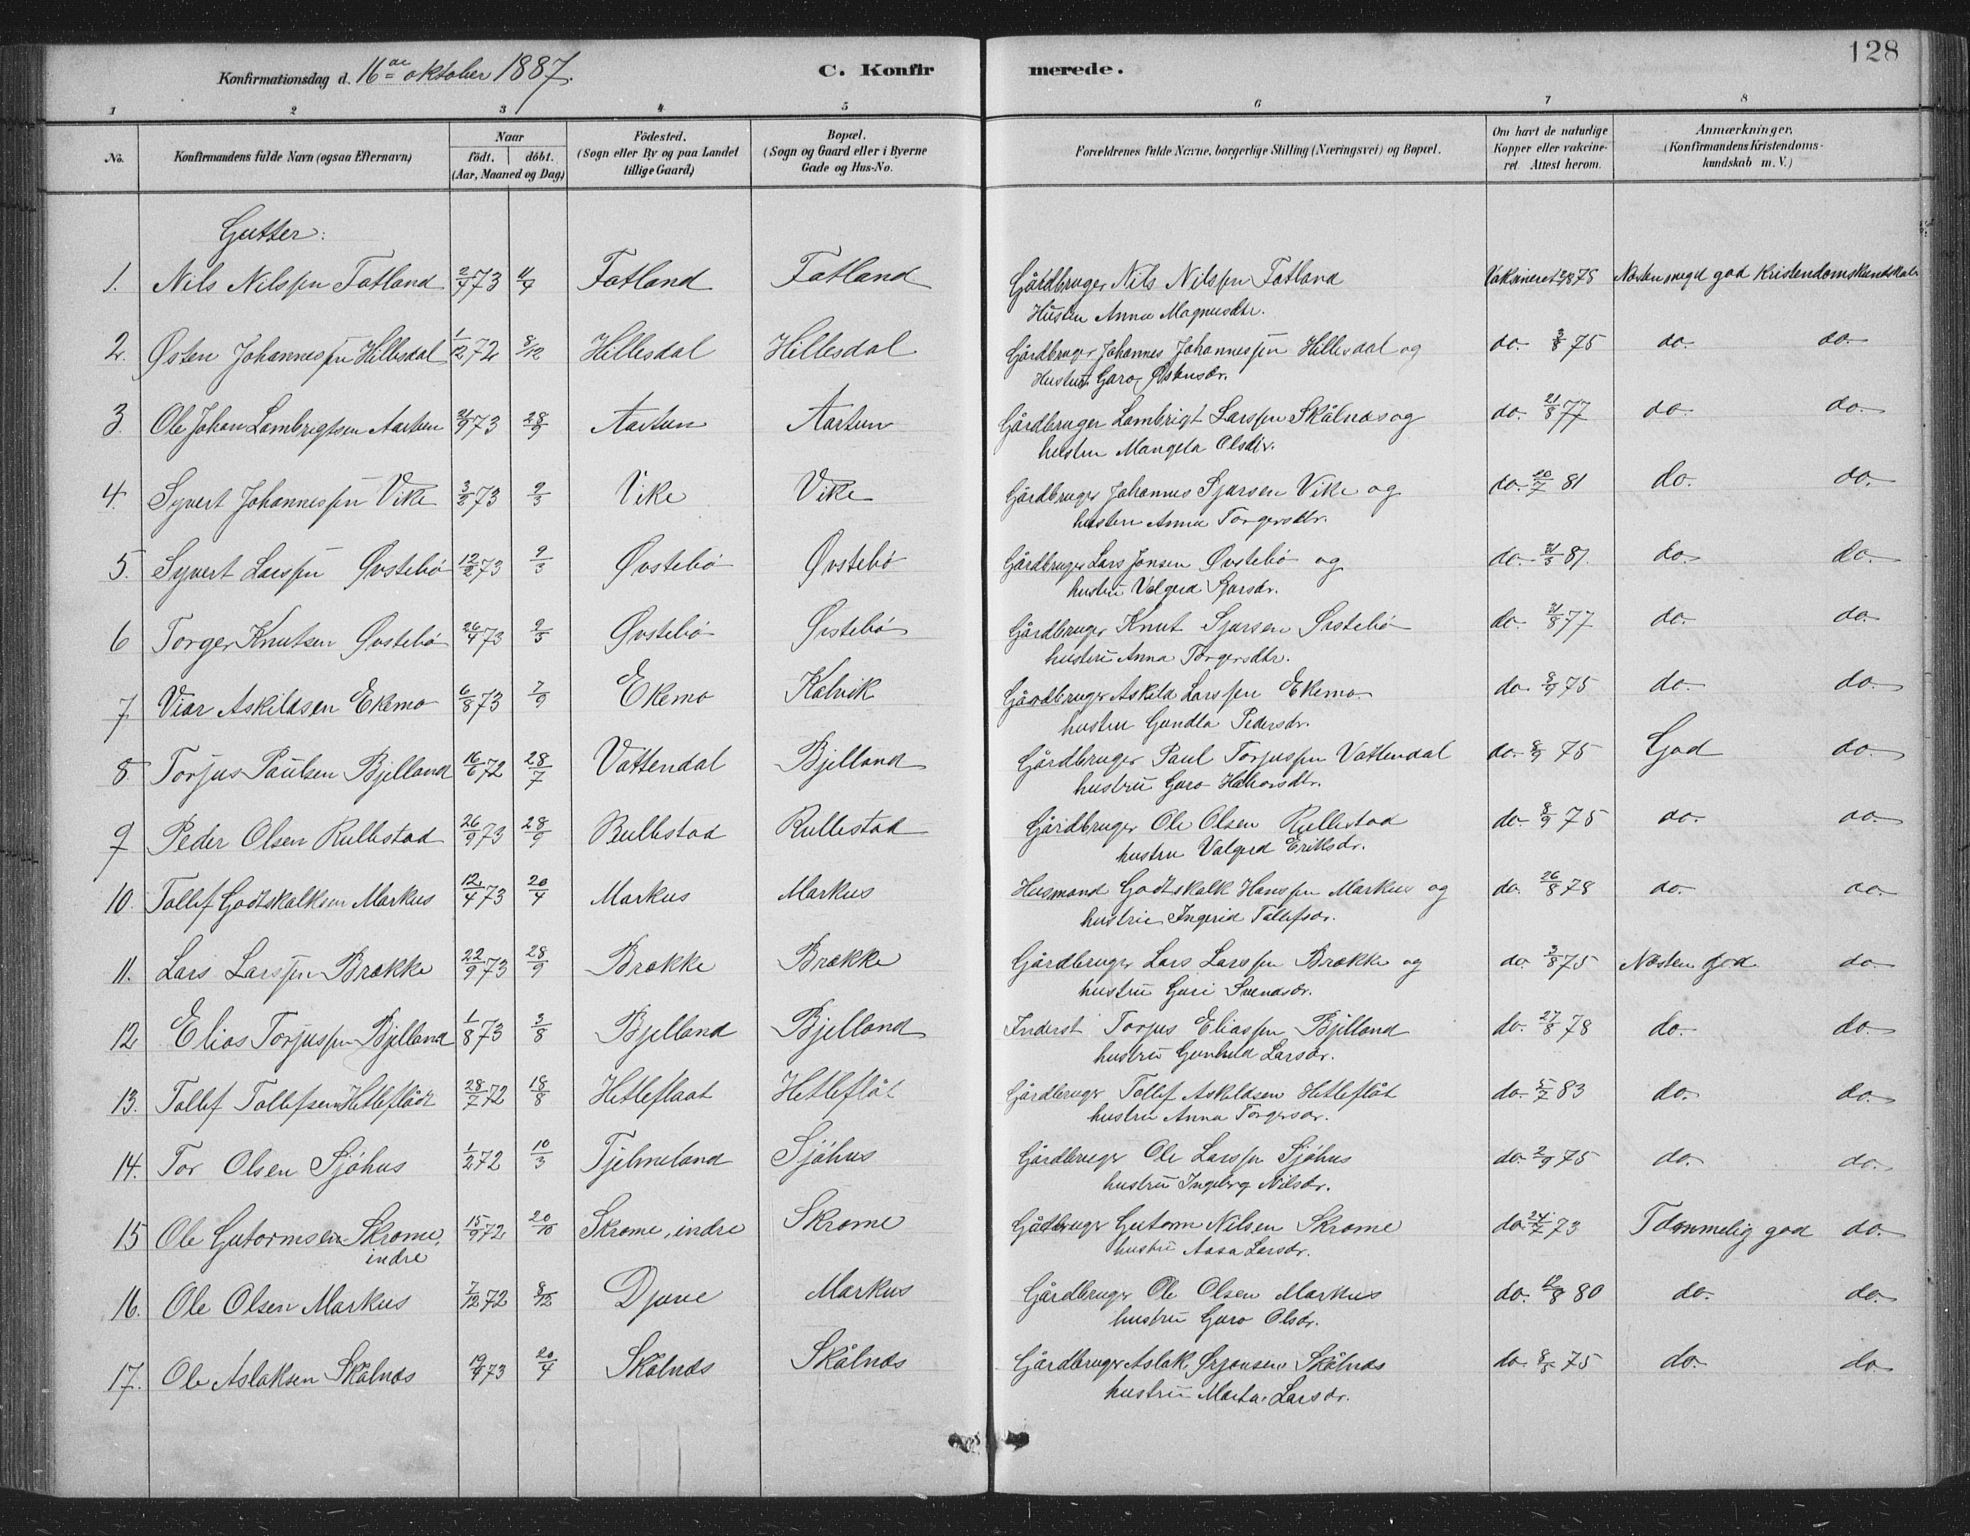 128
Konfirmationsdag d. 16de oktober 1887. C. Konfirmerede.
1 2 3 4 5 6 7 8
No. Konfirmandens fulde Navn (ogsaa Efternavn) Naar født. døbt. (Aar, Maaned og Dag) Födested. (Sogn eller By og paa Landet tillige Gaard) Bopæl. (Sogn og Gaard eller i Byerne Gade og Hus-No. Forældrenes fulde Navne, borgerlige Stilling (Næringsvei) og Bopæl. Om havt de naturlige Kopper eller vakcineret Attest herom. Anmærkninger. (Konfirmandens Kristendomskundskab m. V.)
Gutter:
1. Nils Nilssen Fatland 2/9 73 11/9 Fatland Fatland Gårdbruger Nils Nilssen Fatland Vaksineret 75 Næsten meget god Kristendomskundskab
Hustru Anna Magnusdtr.
2. Østen Johannessen Hillesdal 1/12 72 8/12 Hillesdal Hillesdal Gårdbruger Johannes Johannessen Hillesdal og do. 3/8 75 do. do.
Hustru Guro Østensdr.
3. Ole Johan Lambrigtsen Aartun 21/9 73 28/9 Aartun Aartun Gårdbruger Lambrigt Larssen Skålnæs og do. 21/8 77 do. do.
hustru Mangela Olsdtr.
4. Syvert Johannessen Vike 3/2 73 9/3 Vike Vike Gårdbruger Johannes Sjursen Vike og do. 20/7 81 do. do.
hustru Anna Torgersdtr.
5. Syvert Larssen Øvstebø 12/2 73 9/3 Øvstebø Øvstebø Gårdbruger Lars Jonsen Øvstebø og do. 81. do. do.
hustru Valgerd Sjursdr.
6 Torger Knutsen Øvstebø 26/4 73 Øvstebø Øvstebø Gårdbruger Knut Sjursen Øvstebø do. 21/8 77 do. do.
hustru Anna Torgersdtr.
7. Viar Askildsen Ekemo 6/8 73 7/9 Ekemo Kalvik Gårdbruger Askild Larssen Ekemo do. 8/9 75 do. do.
hustru Gundla Pedersdr.
8 Torjus Paulsen Bjelland 16/6 72 28/7 Vattendal Bjelland Gårdbruger Paul Torjussen Vattendal do. 8/9 75 God do.
hustru Guro Halvorsdtr.
9 Peder Olsen Rullestad 26/9 73 28/9 Rullestad Rullestad Gårdbruger Ole Olsen Rullestad do. 8/9 75 do. do.
hustru Valgerd Eriksdr.
10. Tollef Godtskalksen Markus 12/4 73 20/4 Markus Markus Husmand Godtskalk Hanssen Markus og do. 26/8 78 do. do.
hustru Ingerid Tollefsdr.
11. Lars Larssen Brække 22/9 73 28/9 Brække Brække Gårdbruger Lars Larssen Brække og do. 3/8 75 Næsten god do.
hustru Guri Svendsdr.
12 Elias Torjussen Bjelland 1/8 73 3/8 Bjelland Bjelland Inderst Torjus Eliassen Bjelland do. 27/8 78 do. do.
hustru Gunhild Larsdr.
13. Tollef Tollefsen Hetleflåt 28/7 72 18/8 Hetleflaat Hetleflåt Gårdbruger Tollef Askildsen Hetleflåt do. 5/7 83 do. do.
hustru Anna Torgersdr.
14. Tor Olsen Sjöhus 1/2 72 10/3 Tjelmeland Sjöhus Gårdbruger Ole Larssen Sjöhus do. 2/9 75 do. do.
hustru Ingeborg Nilsdr.
15 Ole Gutormsen Skrome, indre 15/9 72 20/10 Skrome, indre Skrome Gårdbruger Gutorm Nilsen Skrome do. 24/7 73 Temmelig god do.
hustru Aasa Larsdr.
16. Ole Olsen Markus 7/12 72 8/12 Djuve Markus Gårdbruger Ole Olsen Markus do. 80 do. do.
hustru Guro Olsdr.
17. Ole Aslaksen Skålnæs 19/4 73 20/4 Skålnæs Skålnæs Gårdbruger Aslak Ørjansen Skålnæs do. 75 do. do.
hustru Marta Larsdr.